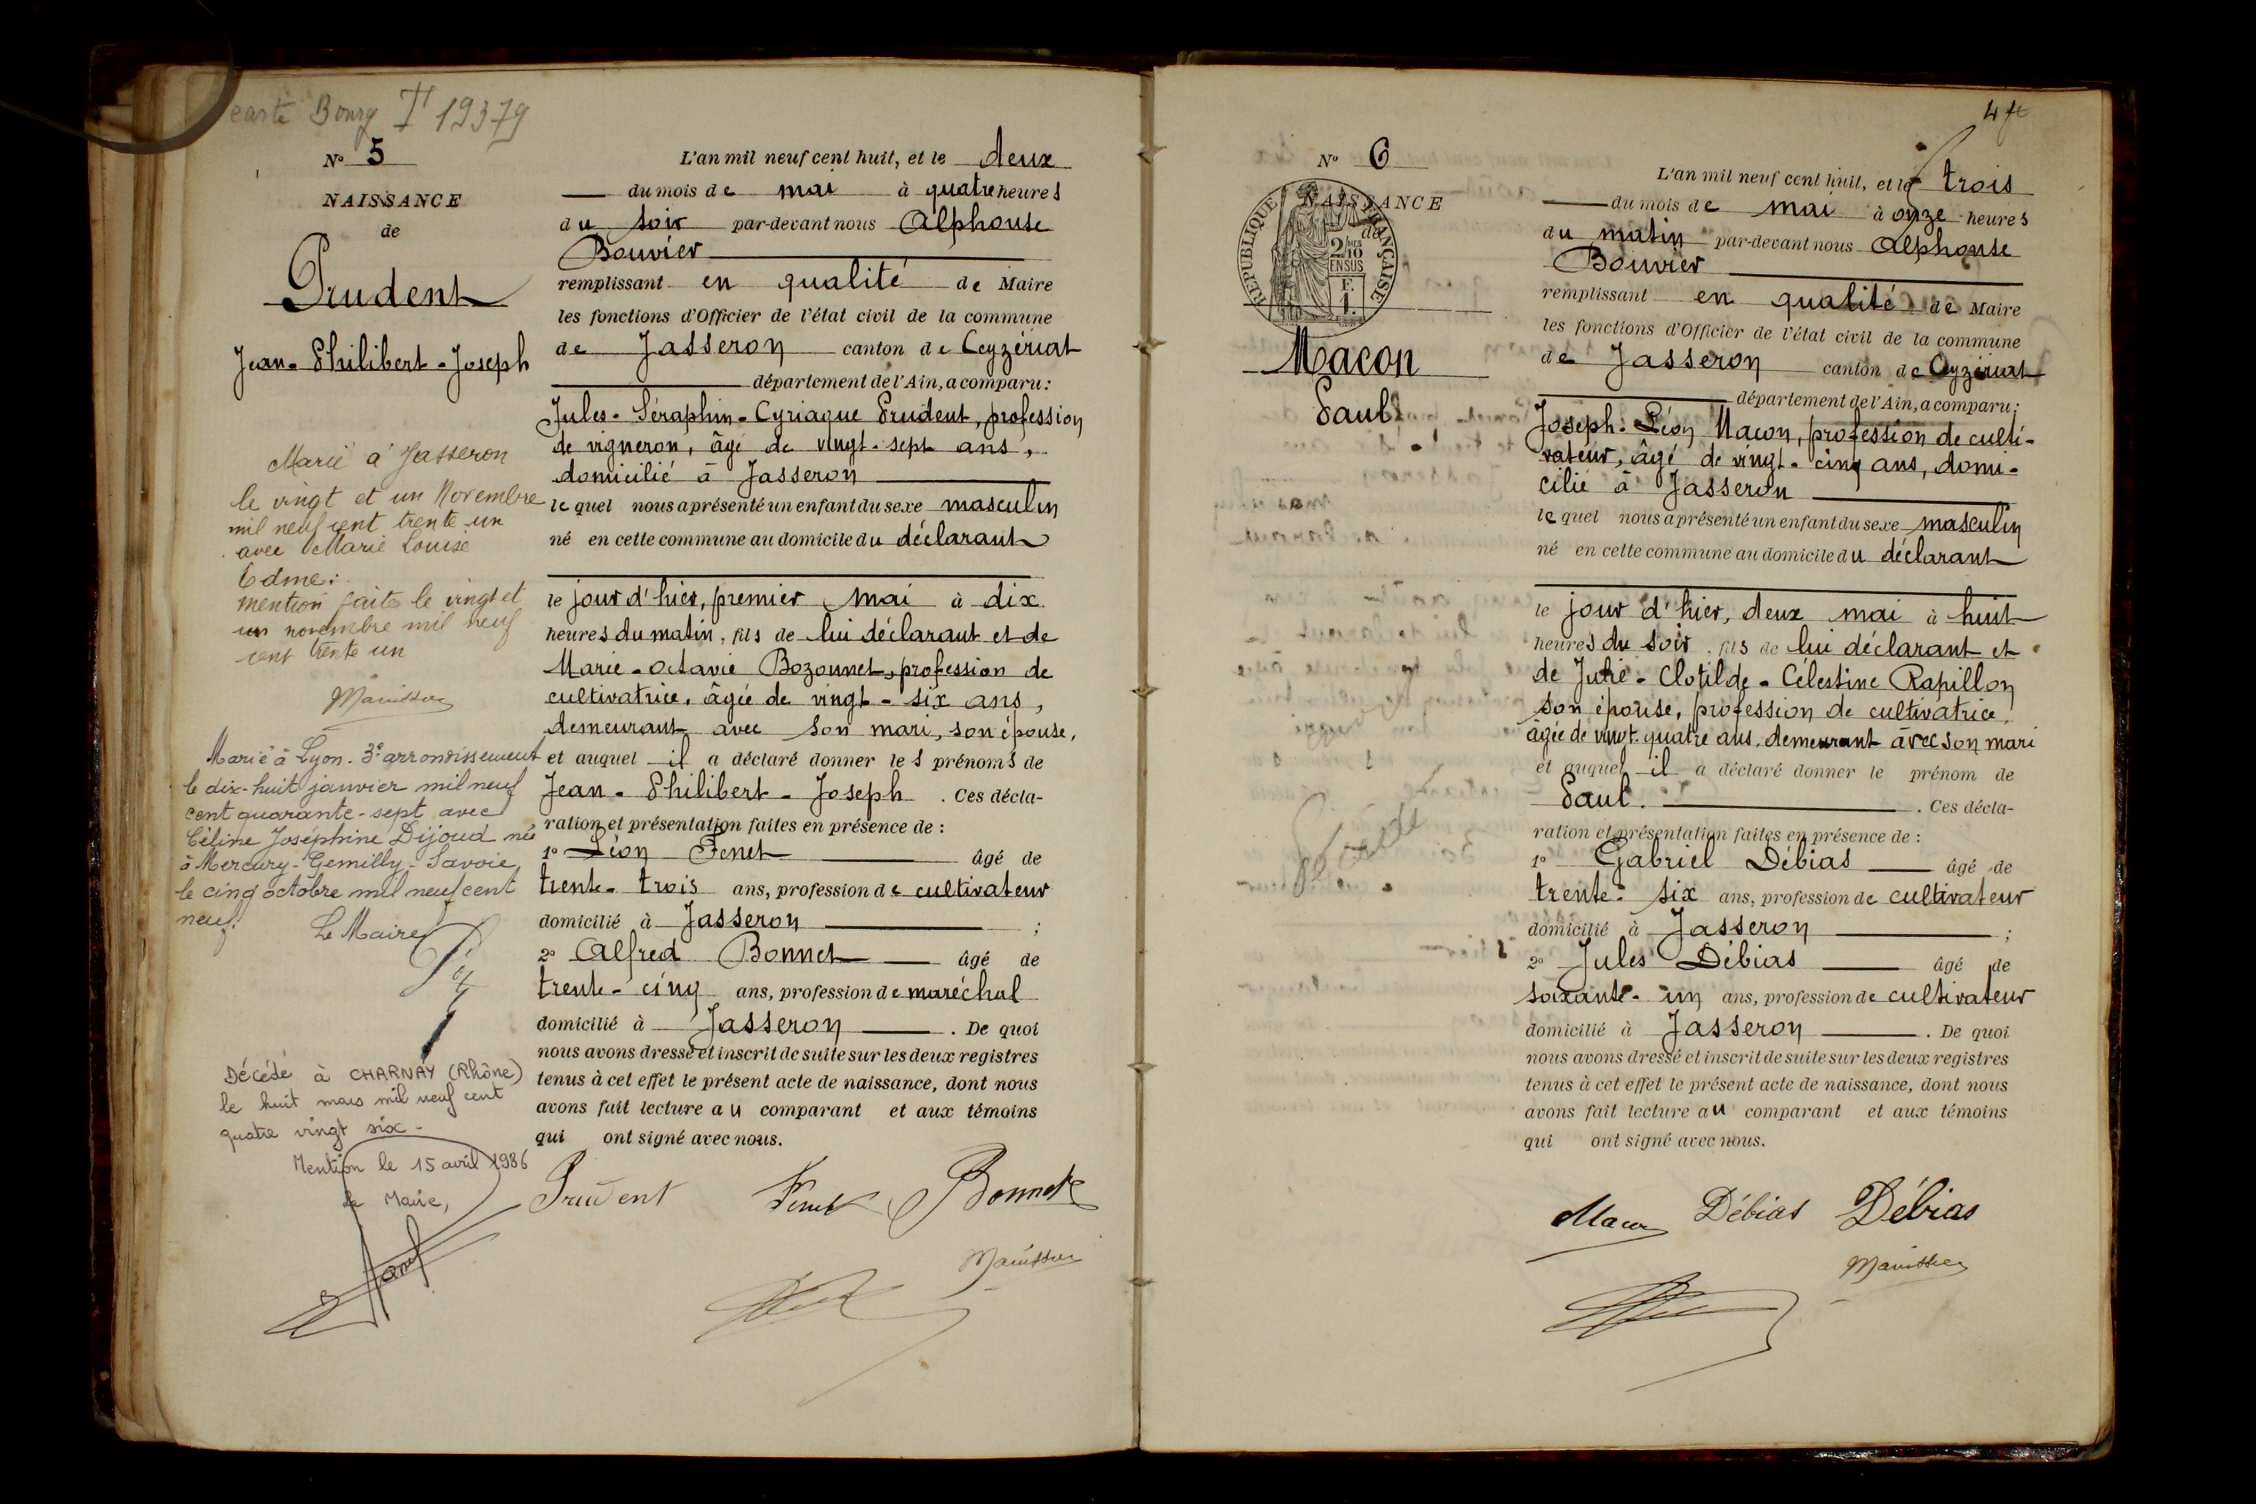 carte Bourg T 19379
N° 5
NAISSANCE
de
Prudent
Jean-Philibert-Joseph
Marié à Jasseron
le vingt et un Novembre
mil neuf cent trente un
avec Marie Louise
Edme:
mention faite le vingt et
un novembre mil neuf
cent trente un
Marié à Lyon. 3e arrondissement
le dix-huit janvier mil neuf
cent quarante-sept avec
Céline Joséphine Dijoud née
à Mercury-Gemilly-Savoie
le cinq octobre mil neuf cent
neuf.
Le Maire
Décédé à CHARNAY (Rhône)
le huit mars mil neuf cent
quatre vingt six-
Mention le 15 avril 1986
le Maire,
L'an mil neuf cent huit, et le deux
du mois de mai à quatre heures
du soir par-devant nous Alphonse
Bouvier
remplissant en qualité de Maire
les fonctions d'Officier de l'état civil de la commune
de Jasseron canton de Ceyzériat
département de l'Ain, a comparu:
Jules-Séraphin-Cyriaque Prudent, profession
de vigneron, âgé de vingt-sept ans,
domicilié à Jasseron
le quel nous a présenté un enfant du sexe masculin
né en cette commune au domicile du déclarant
le jour d'hier, premier mai à dix
heures du matin, fils de lui déclarant et de
Marie-Octavie Bozonnet, profession de
cultivatrice, âgée de vingt-six ans,
demeurant avec son mari, son épouse,
et auquel il a déclaré donner les prénoms de
Jean-Philibert-Joseph. Ces décla-
ration et présentation faites en présence de :
1° Léon Fenet âgé de
trente-trois ans, profession de cultivateur
domicilié à Jasseron ;
2° Alfred Bonnet âgé de
trente-cinq ans, profession de maréchal
domicilié à Jasseron. De quoi
nous avons dressé et inscrit de suite sur les deux registres
tenus à cet effet le présent acte de naissance, dont nous
avons fait lecture au comparant et aux témoins
qui ont signé avec nous.
Prudent Fenet Bonnet
4
N° 6
NAISSANCE
de
REPUBLIQUE FRANÇAISE
2/10
EN SUS
F.
1.
Macon
Paul
L'an mil neuf cent huit, et le trois
du mois de mai à onze heures
du matin par-devant nous Alphonse
Bouvier
remplissant en qualité de Maire
les fonctions d'Officier de l'état civil de la commune
de Jasseron canton de Ceyzériat
département de l'Ain, a comparu:
Joseph-Léon Macon, profession de culti-
vateur, âgé de vingt-cinq ans, domi-
cilié à Jasseron
le quel nous a présenté un enfant du sexe masculin
né en cette commune au domicile du déclarant
le jour d'hier, deux mai à huit
heures du soir, fils de lui déclarant et
de Julie-Clotilde-Célestine Rapillon
son épouse, profession de cultivatrice,
âgée de vingt-quatre ans, demeurant avec son mari
et auquel il a déclaré donner le prénom de
Paul. Ces décla-
ration et présentation faites en présence de :
1° Gabriel Débias âgé de
trente-six ans, profession de cultivateur
domicilié à Jasseron ;
2° Jules Débias âgé de
soixante-un ans, profession de cultivateur
domicilié à Jasseron. De quoi
nous avons dressé et inscrit de suite sur les deux registres
tenus à cet effet le présent acte de naissance, dont nous
avons fait lecture au comparant et aux témoins
qui ont signé avec nous.
Macon Débias Débias